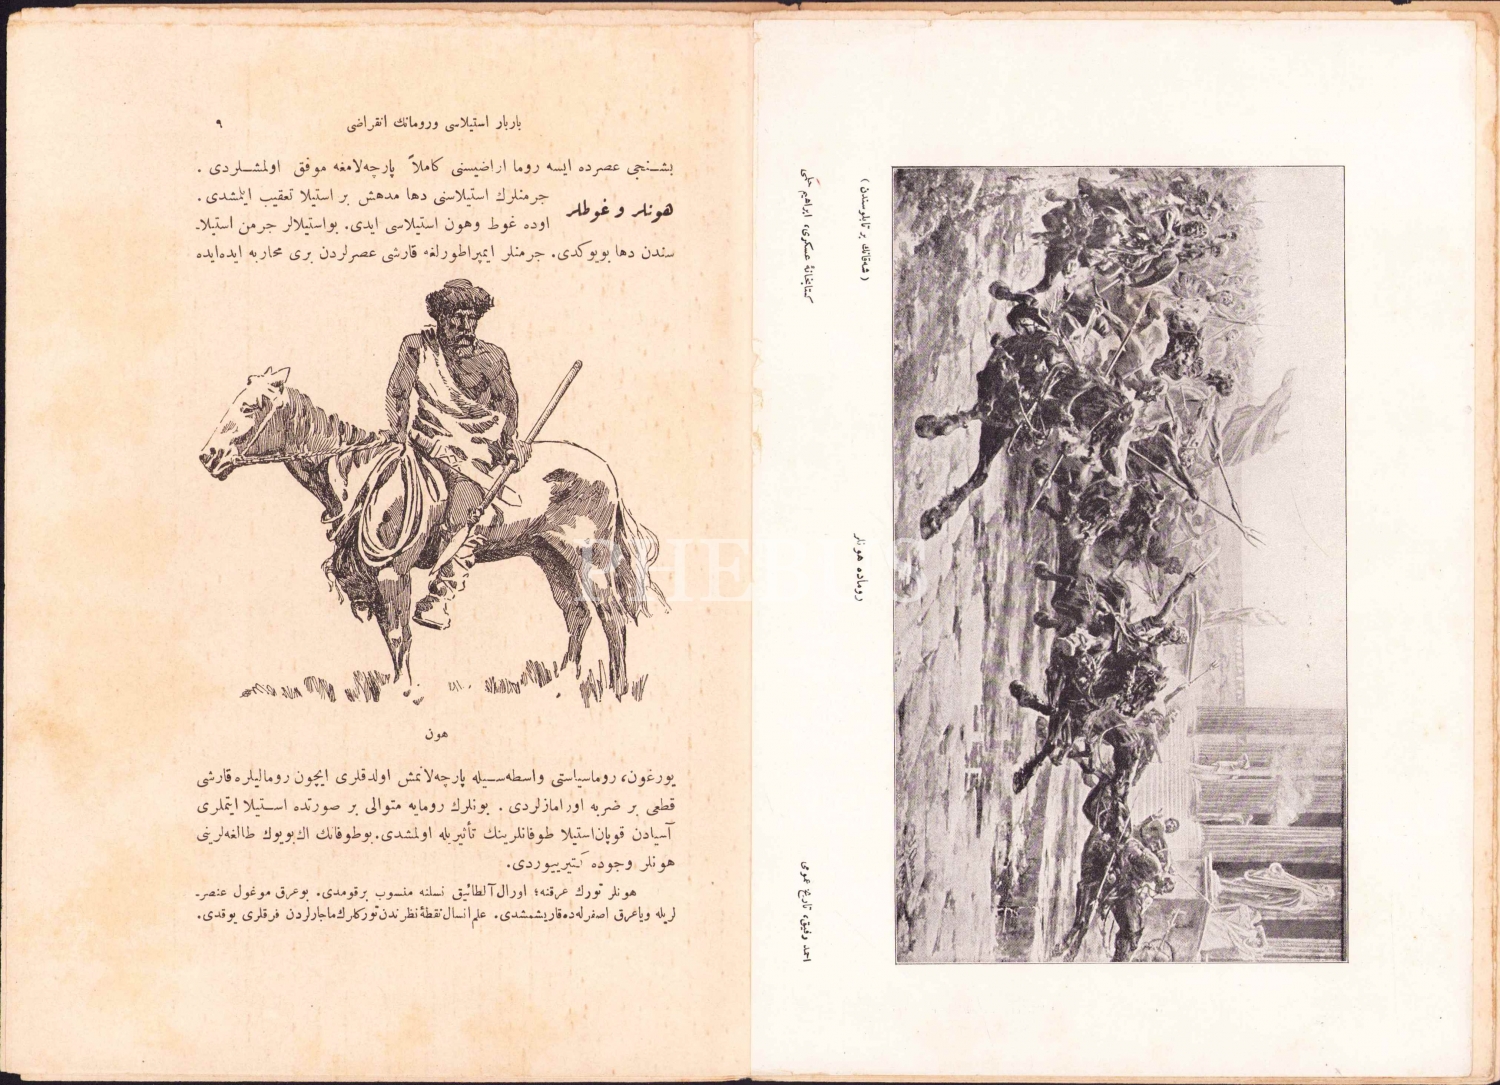 باربار استيلاسی ورومانك انقراضی ٩
بشنجی عصرده ايسه روما اراضيسنی كاملاً پارچه‌لامغه موفق اولمشلردی .
هونلر و غوطلر
جرمنلرك استيلاسنی دها مدهش بر استيلا تعقيب ايلمشدی .
اوده غوط وهون استيلاسی ايدی. بواستيلالر جرمن استيلا-
سندن دها بويوكدی. جرمنلر ايمپراطورلغه قارشی عصرلردن بری محاربه ايده‌ايده
هون
يورغون، روماسياستی واسطه‌سيله پارچه‌لانمش اولدقلری ايچون روماليلره قارشی
قطعی بر ضربه اورامازلردی . بونلرك رومايه متوالی بر صورتده استيلا ايتملری
آسيادن قوپان استيلا طوفانلرينك تأثيريله اولمشدی. بوطوفانك اك بويوك طالغه‌لرينی
هونلر وجوده كتيرييوردی.
هونلر تورك عرقنه؛ اورال آلطائيق نسلنه منسوب برقومدی. بوعرق موغول عنصر-
لريله وياعرق اصفرله‌ده قاريشمشدی. علم انسال نقطۀ نظرندن توركلرك ماجارلردن فرقلری يوقدی.
كتابخانۀ عسكری، ابراهيم حلمی
احمد رفيق، تاريخ عمومی
روماده هونلر
PHEBUS